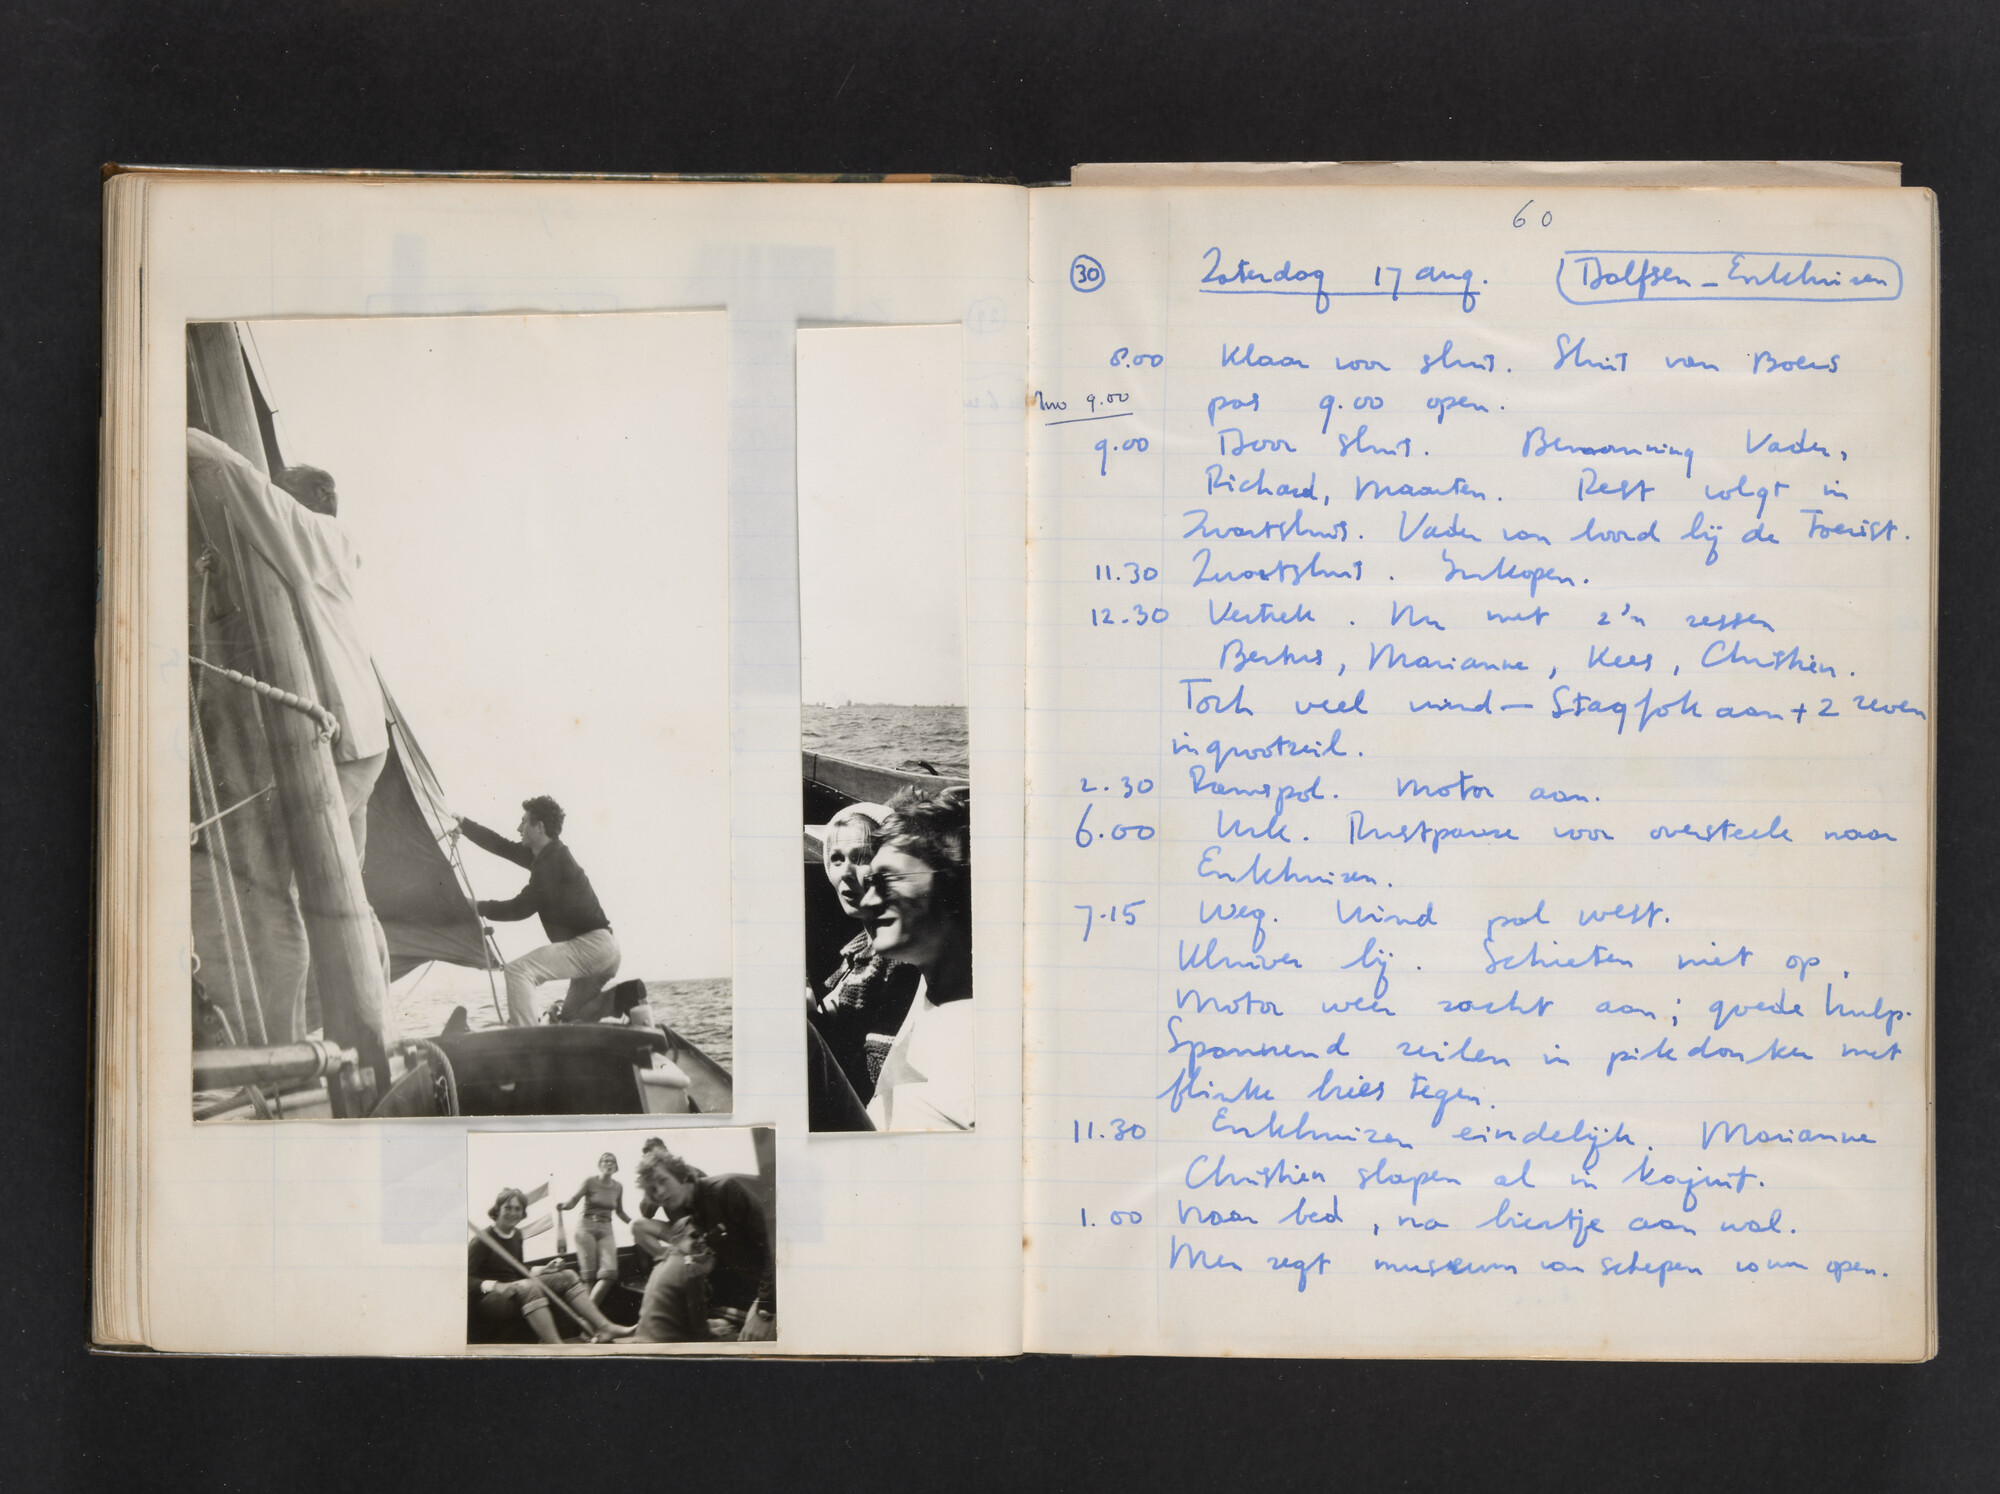 60
30 Zaterdag 17 aug. Dalfsen - Enkhuizen
8.00 Klaar voor sluis. Sluis van Boers
9.00
pas 9.00 open.
9.00 Door sluis. Bemanning Vader,
Richard, Maarten. Rest volgt in
Zwartsluis. Vader van boord bij de Toerist.
11.30 Zwartsluis. Inkopen.
12.30 Vertrek. Nu met z'n zessen
Bertus, Marianne, Kees, Christien.
Toch veel wind - Stagfok aan + 2 reven
in grootzeil.
2.30 Ramspol. Motor aan.
6.00 Urk. Rustpauze voor oversteek naar
Enkhuizen.
7.15 Weg. Wind pal west.
Kluiver bij. Schieten niet op,
Motor weer zacht aan; goede hulp.
Spannend zeilen in pikdonker met
flinke bries tegen.
11.30 Enkhuizen eindelijk. Marianne
Christien slapen al in kajuit.
1.00 Naar bed, na biertje aan wal.
Men zegt museum van schepen open.